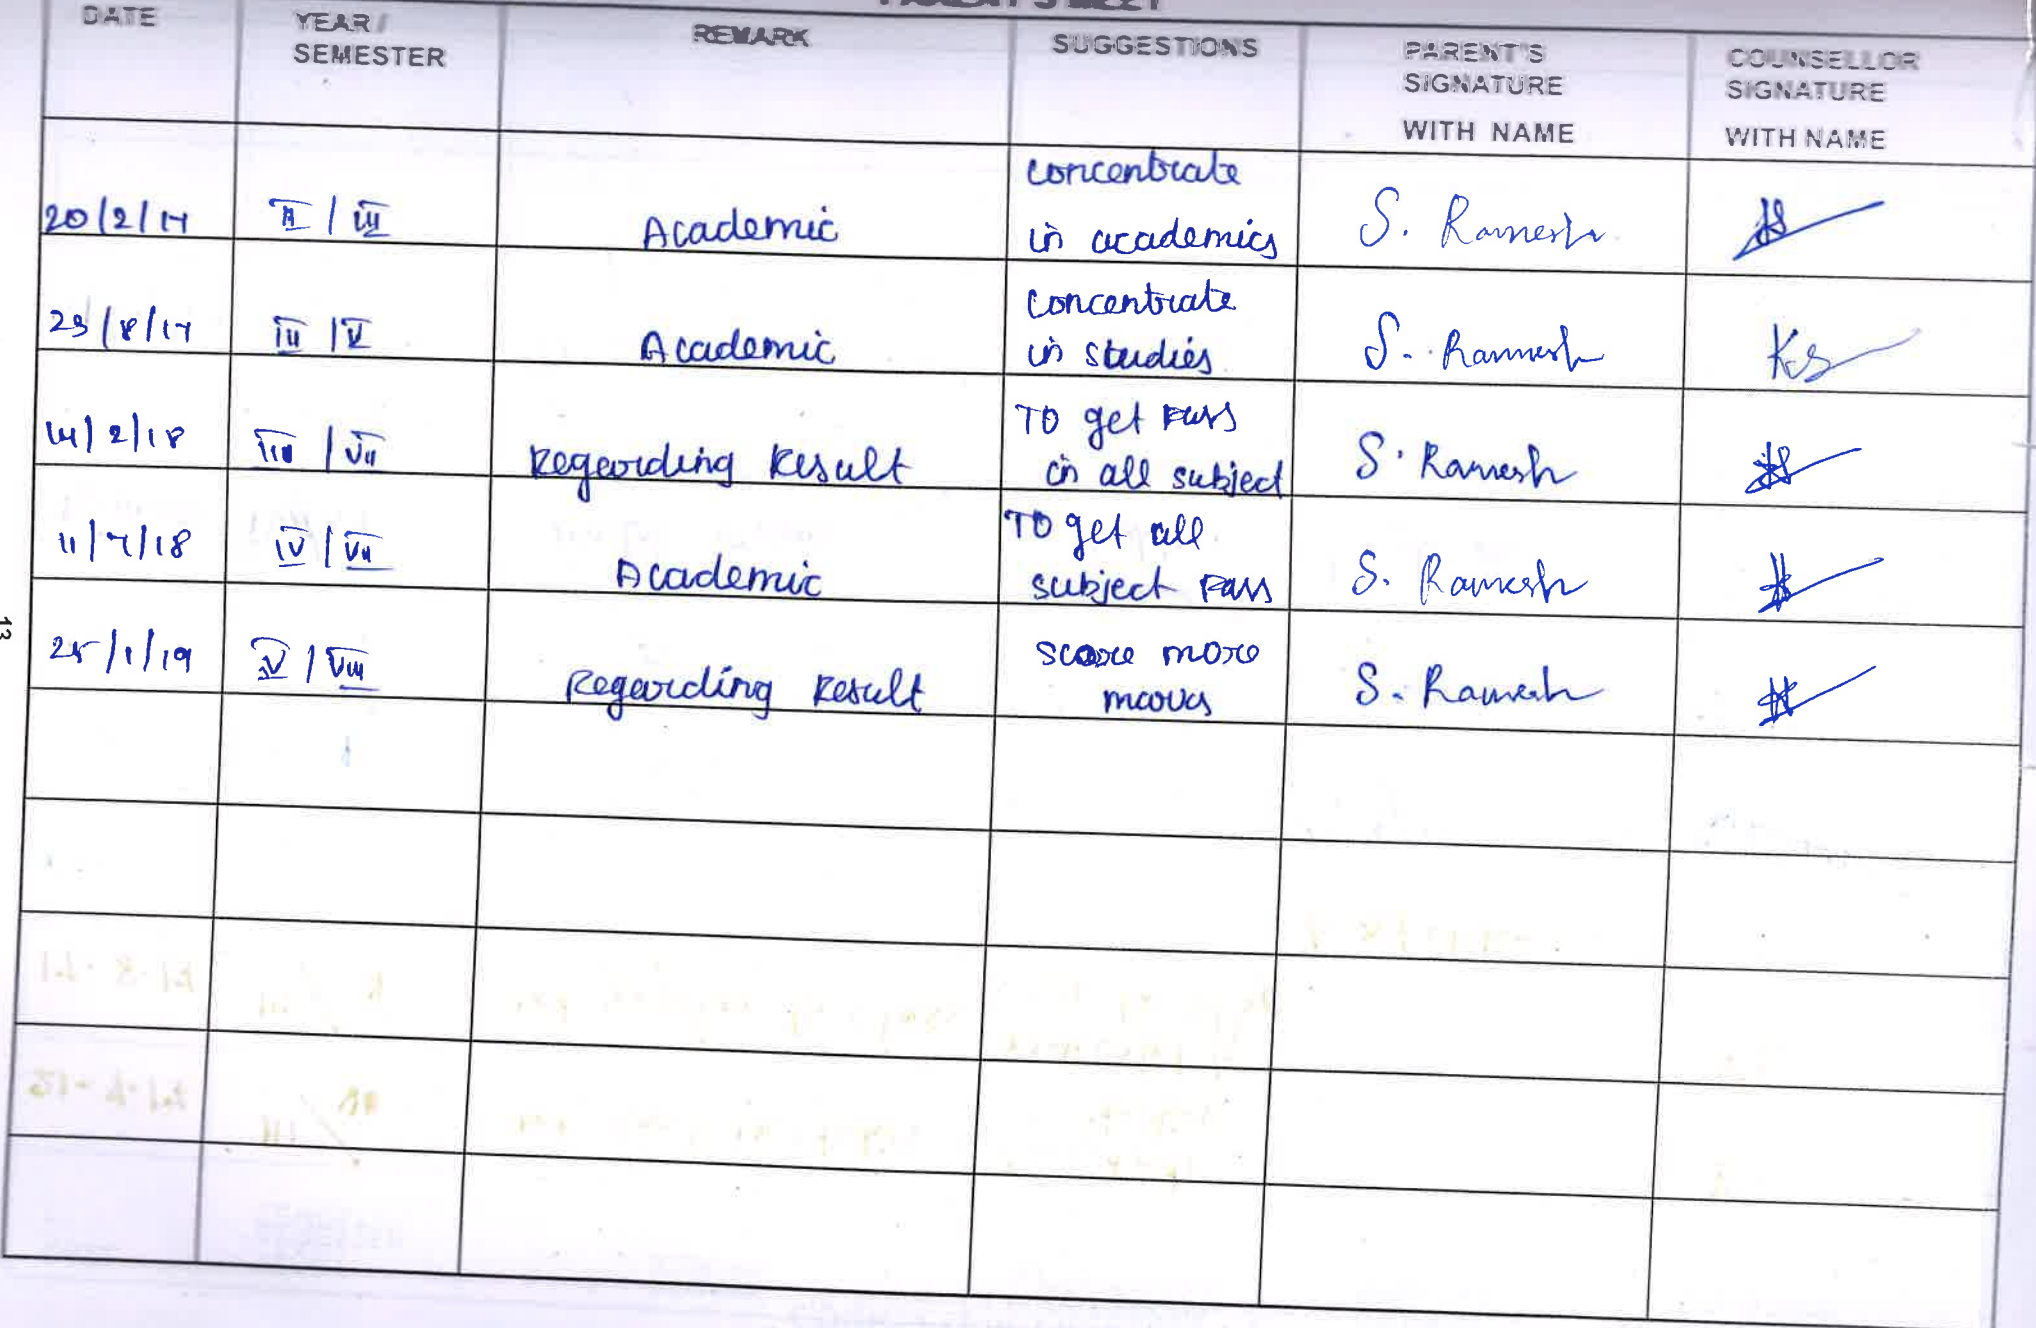 PARENT'S MEET
DATE
YEAR /
SEMESTER
REMARK
SUGGESTIONS
PARENT'S
SIGNATURE
WITH NAME
COUNSELLOR
SIGNATURE
WITH NAME
20/2/17
II / III
Academic
concentrate
in academics
S. Ramesh
23/8/17
III / V
Academic
concentrate
in studies
S. Ramesh
KS
14/2/18
III / VII
Regarding Result
TO get pass
in all subject
S. Ramesh
11/7/18
IV / VII
Academic
TO get all
subject pass
S. Ramesh
25/1/19
IV / VIII
Regarding Result
score more
S. Ramesh
13